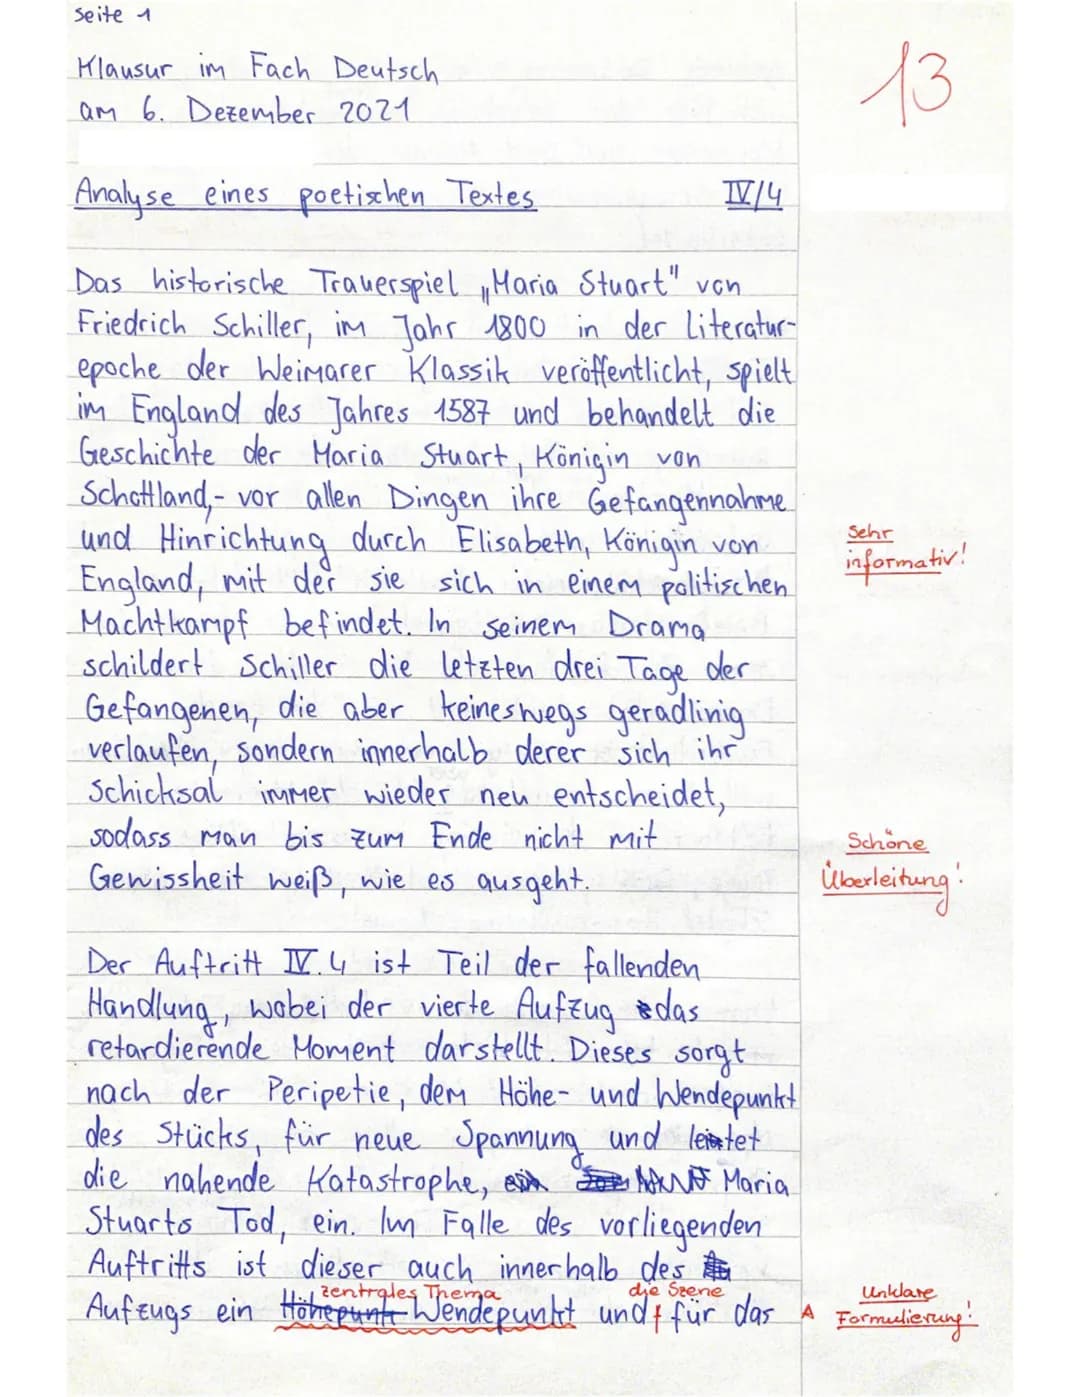 Seite 1
Klausur im Fach Deutsch
am 6. Dezember 2021
13
Analyse eines poetischen Textes IV/4
Das historische Trauerspiel „Maria Stuart" von
Friedrich Schiller, im Jahr 1800 in der Literatur-
epoche der Weimarer Klassik veröffentlicht, spielt
im England des Jahres 1587 und behandelt die
Geschichte der Maria Stuart, Königin von
Schottland,- vor allen Dingen ihre Gefangennahme
und Hinrichtung durch Elisabeth, Königin von
Sehr
informativ!
England, mit der sie sich in einem politischen
Machtkampf befindet. In seinem Drama
schildert Schiller die letzten drei Tage der
Gefangenen, die aber keineswegs geradlinig
verlaufen, sondern innerhalb derer sich ihr
Schicksal immer wieder neu entscheidet,
sodass man bis zum Ende nicht mit
Gewissheit weiß, wie es ausgeht.
Schöne
Überleitung!
Der Auftritt IV.4 ist Teil der fallenden
Handlung, wobei der vierte Aufzug das
retardierende Moment darstellt. Dieses sorgt
nach der Peripetie, dem Höhe- und Wendepunkt
des Stücks, für neue Spannung und leitet
die nahende Katastrophe, Maria
Stuarts Tod, ein. Im Falle des vorliegenden
Auftritts ist dieser auch innerhalb des
zentrales Thema die Szene
Aufzugs ein Höhepunkt Wendepunkt und für das
A Unklare
Formulierung!